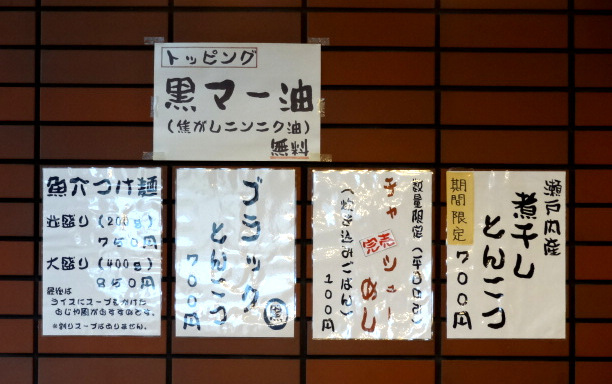 トッピング
黒マー油
(焦がしニンニク油)
無料
魚介つけ麺
並盛り(200g)
750円
大盛り(400g)
850円
最後は
ライスにスープをかけた
おじや風がおすすめです。
*割りスープはありません。
ブラック
とんこつ
700円
黒
数量限定
チャーシューめし
売完
(炊き込みごはん)
100円
瀬戸内産
煮干し
とんこつ
期間限定
700円